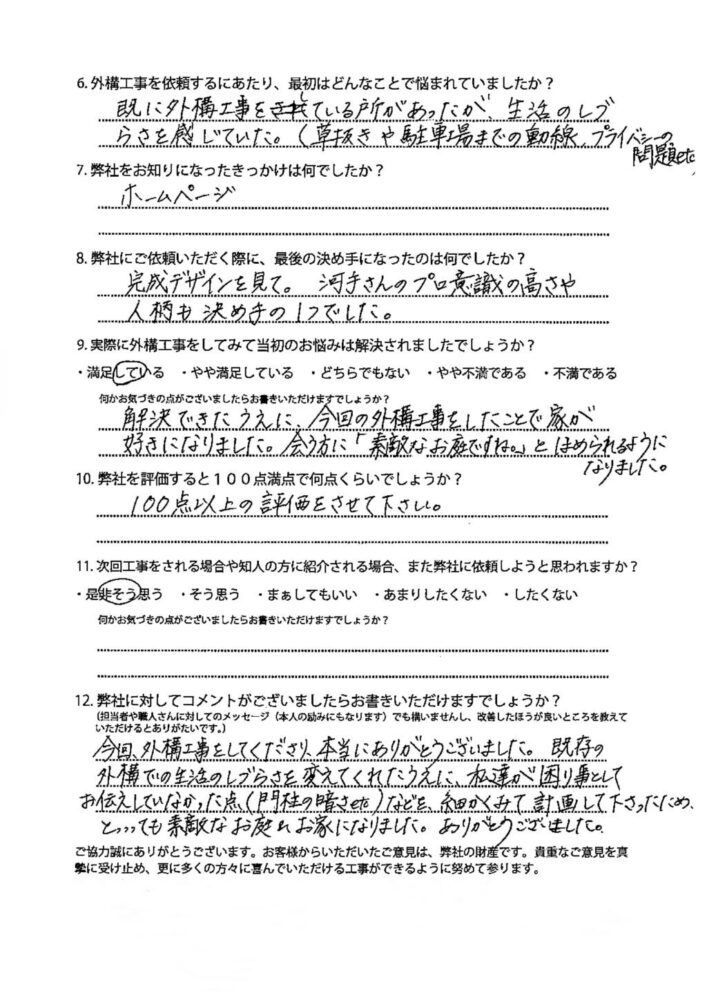 6. 外構工事を依頼するにあたり、最初はどんなことで悩まれていましたか？
既に外構工事をされている所があったが、生活のしづ
らさを感じていた。（草抜きや駐車場までの動線、プライバシーの
問題etc.
7. 弊社をお知りになったきっかけは何でしたか？
ホームページ
8. 弊社にご依頼いただく際に、最後の決め手になったのは何でしたか？
完成デザインを見て。 河手さんのプロ意識の高さや
人柄も決め手の1つでした。
9. 実際に外構工事をしてみて当初のお悩みは解決されましたでしょうか？
・満足している ・やや満足している ・どちらでもない ・やや不満である ・不満である
何かお気づきの点がございましたらお書きいただけますでしょうか？
解決できたうえに、今回の外構工事をしたことで家が
好きになりました。会う方に「素敵なお庭ですね。」とほめられるように
なりました。
10. 弊社を評価すると１００点満点で何点くらいでしょうか？
100点以上の評価をさせて下さい。
11. 次回工事をされる場合や知人の方に紹介される場合、また弊社に依頼しようと思われますか？
・是非そう思う ・そう思う ・まぁしてもいい ・あまりしたくない ・したくない
何かお気づきの点がございましたらお書きいただけますでしょうか？
12. 弊社に対してコメントがございましたらお書きいただけますでしょうか？
（担当者や職人さんに対してのメッセージ（本人の励みにもなります）でも構いませんし、改善したほうが良いところを教えて
いただけるとありがたいです。）
今回、外構工事をしてくださり、本当にありがとうございました。 既存の
外構での生活のしづらさを変えてくれたうえに、私達が困り事として
お伝えしていなかった点（門柱の暗さetc）なども、細かくみて計画して下さったため、
とっっっても素敵なお庭とお家になりました。ありがとうございました。
ご協力誠にありがとうございます。お客様からいただいたご意見は、弊社の財産です。貴重なご意見を真
摯に受け止め、更に多くの方々に喜んでいただける工事ができるように努めて参ります。